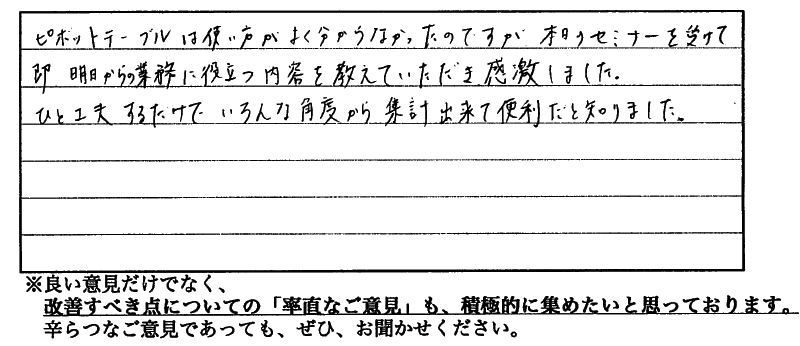 ピボットテーブルは使い方がよく分からなかったのですが 本日のセミナーを受けて
即 明日からの業務に役立つ内容を教えていただき感激しました。
ひと工夫するだけで いろんな角度から集計出来て便利だと知りました。
※良い意見だけでなく、
改善すべき点についての「率直なご意見」も、積極的に集めたいと思っております。
辛らつなご意見であっても、ぜひ、お聞かせください。